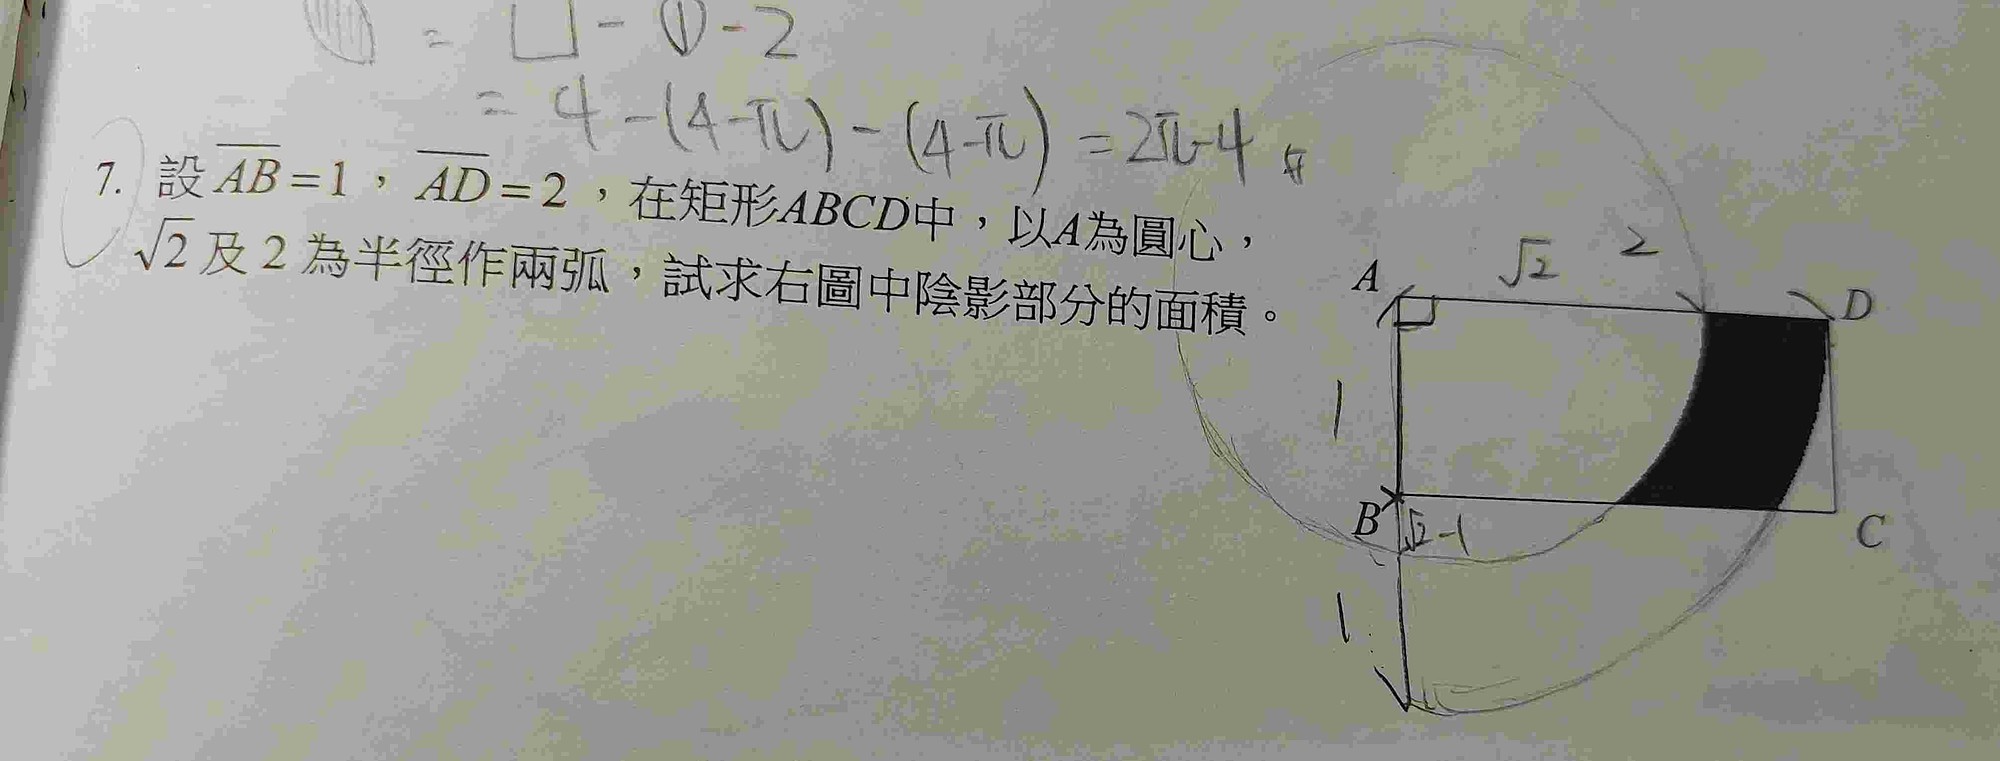 = □ - ① - 2
= 4 - (4-π) - (4-π) = 2π-4
7. 設AB=1，AD=2，在矩形ABCD中，以A為圓心，
√2及2為半徑作兩弧，試求右圖中陰影部分的面積。
√2 2
A D
1
B C
√2-1
1